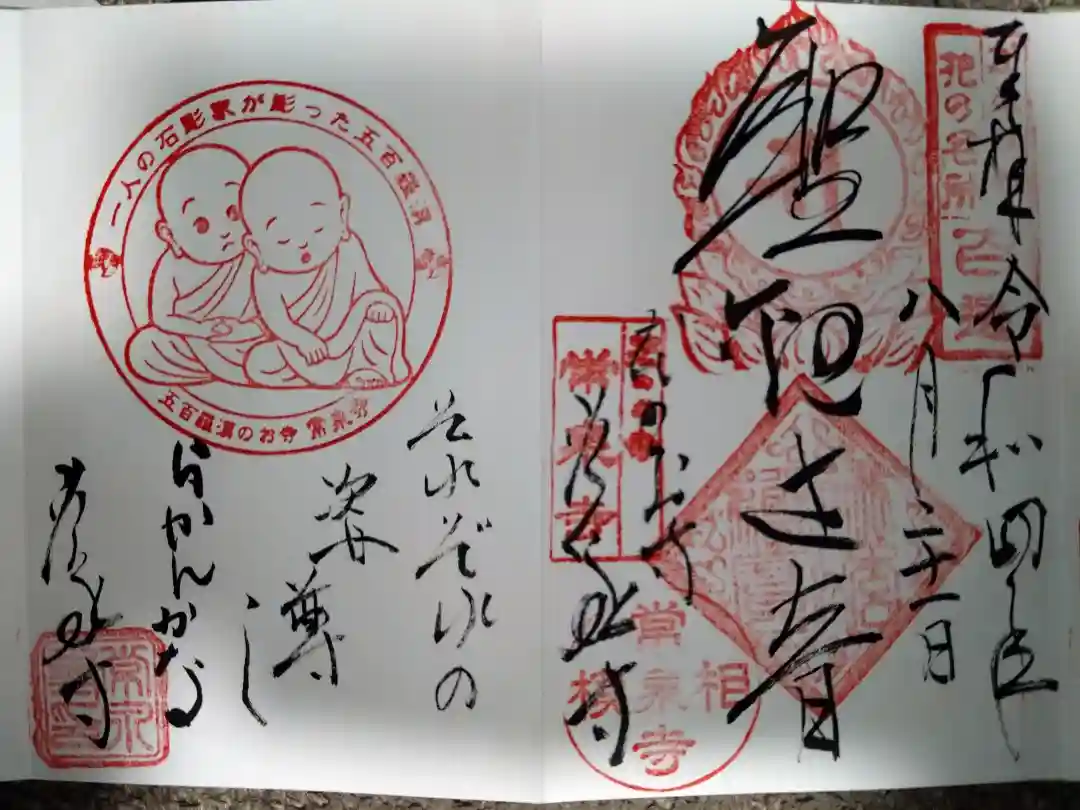 奉拝 令和四年
八月二十一日
聖観世音
花のお寺
常泉寺
常泉寺
相模
常泉寺
一人の石彫家が彫った五百羅漢
五百羅漢のお寺 常泉寺
それぞれの
姿尊し
らかんかな
常泉寺